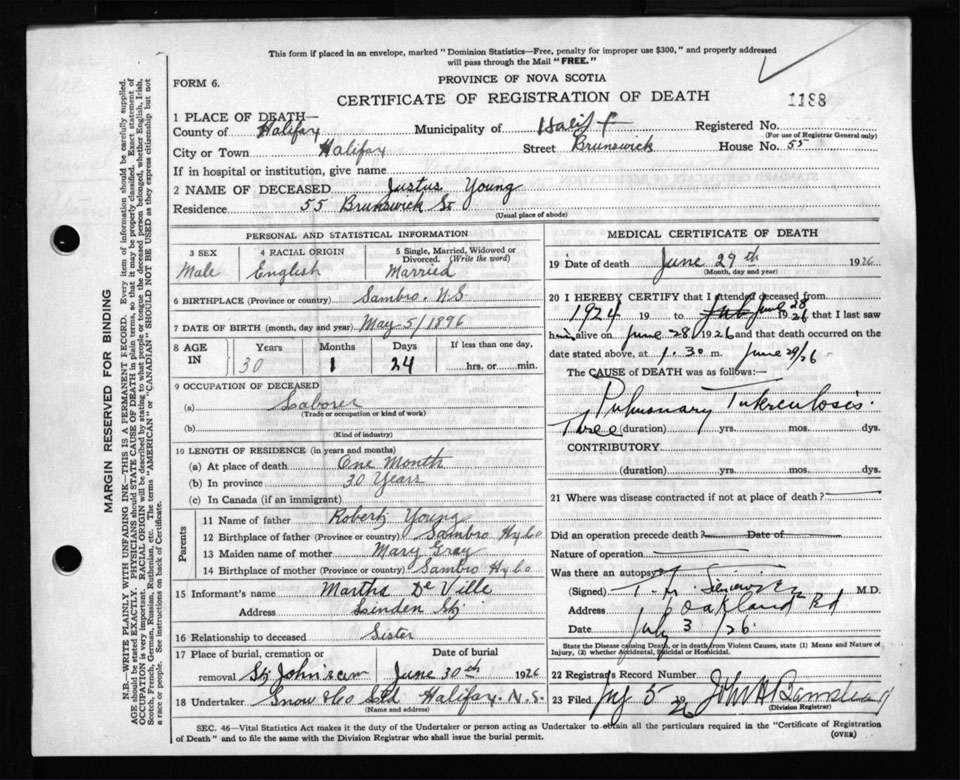 This form if placed in an envelope, marked "Dominion Statistics—Free, penalty for improper use $300," and properly addressed
will pass through the Mail "FREE."
FORM 6.
PROVINCE OF NOVA SCOTIA
CERTIFICATE OF REGISTRATION OF DEATH
1188
1 PLACE OF DEATH—
County of Halifax Municipality of Registered No.
(For use of Registrar General only)
City or Town Halifax Street Brunswick House No. 55
If in hospital or institution, give name
2 NAME OF DECEASED Justus Young
Residence 55 Brunswick St
(Usual place of abode)
PERSONAL AND STATISTICAL INFORMATION
3 SEX 4 RACIAL ORIGIN 5 Single, Married, Widowed or
Divorced. (Write the word)
Male English Married
6 BIRTHPLACE (Province or country) Sambro. N.S.
7 DATE OF BIRTH (month, day and year) May 5/1896
8 AGE IN Years Months Days If less than one day,
30 1 24 hrs. or min.
9 OCCUPATION OF DECEASED
(a) Laborer
(Trade or occupation or kind of work)
(b)
(Kind of industry)
10 LENGTH OF RESIDENCE (in years and months)
(a) At place of death One Month
(b) In province 30 Years
(c) In Canada (if an immigrant)
Parents
11 Name of father Robert Young
12 Birthplace of father (Province or country) Sambro
13 Maiden name of mother Mary Gray
14 Birthplace of mother (Province or country) Sambro
15 Informant's name Martha De Ville
Address
16 Relationship to deceased Sister
17 Place of burial, cremation or Date of burial
removal June 30th 1926
18 Undertaker Snow & Co Ltd Halifax. N.S.
(Name and address)
MEDICAL CERTIFICATE OF DEATH
19 Date of death June 29th 1926
(Month, day and year)
20 I HEREBY CERTIFY that I attended deceased from
1924 19 to June 28 1926 that I last saw
him alive on June 28 1926 and that death occurred on
date stated above, at 1.30 m. June 29/26
The CAUSE of DEATH was as follows:—
Pulmonary Tuberculosis.
Three (duration) yrs. mos. dys.
CONTRIBUTORY.
(duration) yrs. mos. dys.
21 Where was disease contracted if not at place of death?
Did an operation precede death? Date of
Nature of operation
Was there an autopsy
(Signed) M.D.
Address Oakland Rd
Date July 3 /26
State the Disease causing Death, or in death from Violent Causes, state (1) Means and Nature of
Injury, (2) whether Accidental, Suicidal or Homicidal.
22 Registrar's Record Number
23 Filed 5 1926
(Division Registrar)
SEC. 46—Vital Statistics Act makes it the duty of the Undertaker or person acting as Undertaker to obtain all the particulars required in the "Certificate of Registration
of Death" and to file the same with the Division Registrar who shall issue the burial permit.
(OVER)
MARGIN RESERVED FOR BINDING
N.B.—WRITE PLAINLY WITH UNFADING INK—THIS IS A PERMANENT RECORD. Every item of information should be carefully supplied.
AGE should be stated EXACTLY. PHYSICIANS should STATE CAUSE OF DEATH in plain terms, so that it may be properly classified. Exact statement of
OCCUPATION is very important. RACIAL ORIGIN will be described by stating to what people or tongue the deceased person belonged, whether English, Irish,
Scotch, French, German, Russian, Ruthenian, etc. The terms "AMERICAN" or "CANADIAN" SHOULD NOT BE USED as they express citizenship but not
a race or people. See instructions on back of Certificate.